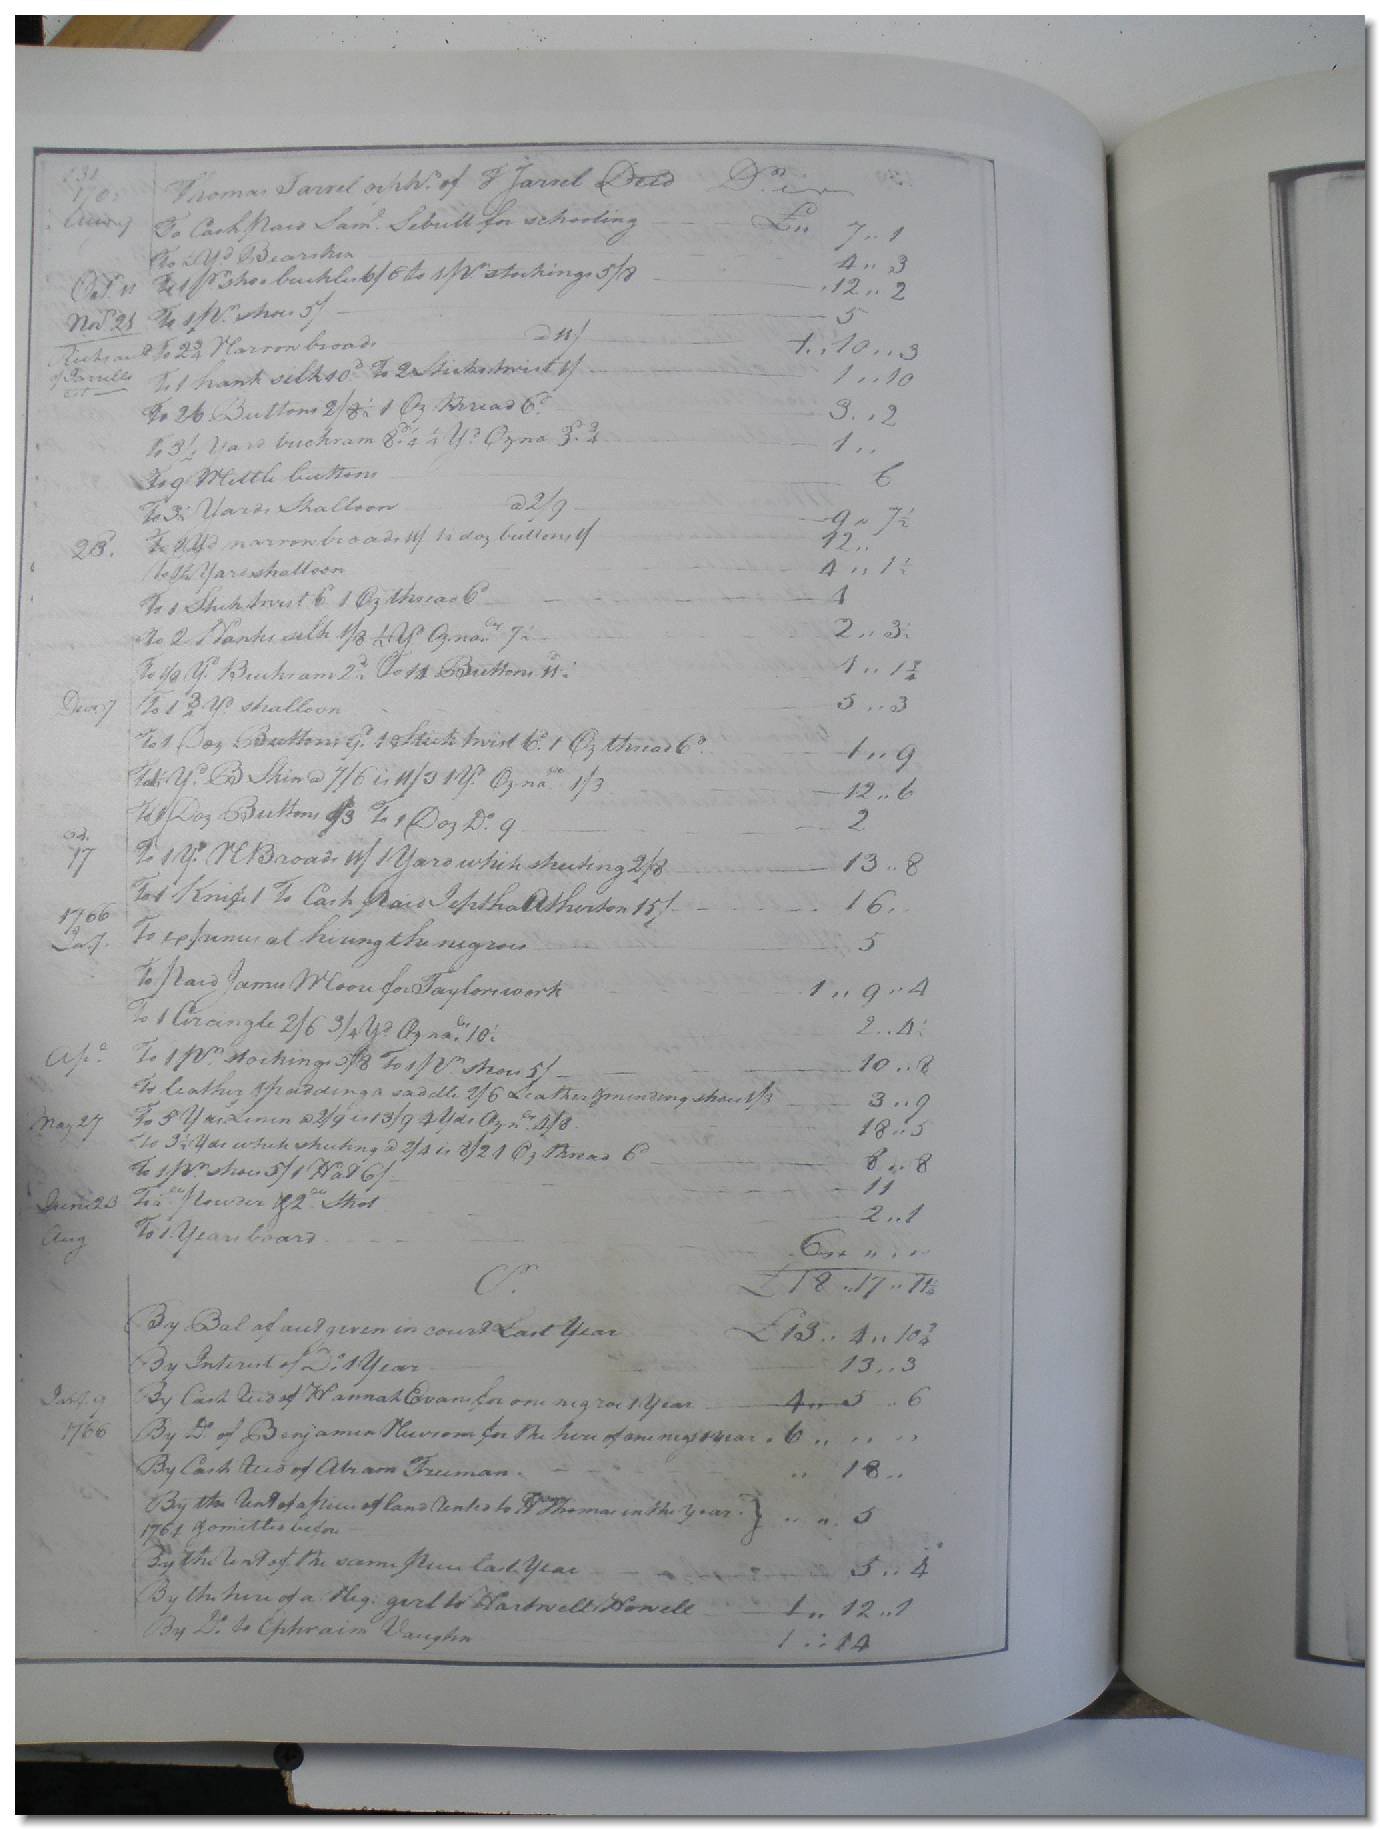 131
Thomas Jarrel orphn. of T Jarrel Decd Dr.
To Cash paid Saml. Sebrell for schooling £ 7 1
To Yd Bearskin 4 3
Oct. 11 To 1 pr shoe buckles 6/6 to 1 pr stockings 5/8 12 2
Nov. 21 To 1 pr. shoes 5/ 5
Richard To 2 3/4 Narrow broads @ 11/ 1 10 3
of Jarrells
To 1 hank silk 10d To 2 Sticks twist 1/ 1 10
To 26 Buttons 2/8 1 Oz thread 6d 3 2
To Yard buckram 1/4 Yd Ozna 1
To 9 Mettle buttons 6
To 3½ Yards Shalloon @ 2/9 9 7½
28. To 1 Yd narrow broads 11/ 1 doz buttons 1/ 12
To 1½ Yard shalloon 4 1½
To 1 Stick twist 6 1 Oz thread 6d 1
To 2 Hanks silk 1/8 ½ Yd Ozna. 7½ 2 3½
To 1/8 Yd. Buckram To 14 Buttons 1 1¾
Decr 7 To 1 3/4 Yd. shalloon 5 3
To 1 Doz Buttons 9d. 1 Stick twist 6d. 1 Oz thread 6d. 1 9
To 1½ Yd. B Skin @ 7/6 is 11/3 1 Yd. Ozna 1/3 12 6
To 1 Doz Buttons 1/3 To 1 Doz Do. 9 2
17 To 1 Yd. N Broads 11/ 1 Yard white sheeting 2/8 13 8
To 1 Knife 1 To Cash paid Jeptha Atherton 15/ 16
1766
Jay. To expenses at hireing the negroes 5
To paid James Moore for Taylors work 1 9 4
To 1 Circingle 2/6 3/4 Yd Ozna. 10½ 2 4½
Apl. To 1 pr. stockings 5/8 To 1 pr. shoes 5/ 10 8
To leather & padding a saddle 2/6 Leather & mending shoes 1/3 3 9
May 27 To 5 Yds Linen @ 2/9 is 13/9 4 Yds Ozn 4/8 18 5
To 3½ Yds white sheeting @ 2/4 is 8/2 1 Oz thread 6d 8 8
To 1 pr. shoes 5/ 1 Hat 6/ 11
June 23 To powder & 2 Shot 2 1
Aug To 1 Years board 6
Cr. £18 17
By Bal of acct given in court Last Year £13 4 10¾
By Interest of Do. 1 Year 13 3
Jany. 9 By Cash recd of Hannah Evans for one negroe 1 Year 4 5 6
1766 By Do. of Benjamin Newsom for the hire of one negr 1 year 6
By Cash recd of Abram Freeman 18
By the rent of a piece of land rented to Thomas in the year 5
1764 & omitted before
By the rent of the same piece last Year 5 4
By the hire of a Neg. girl to Hartwell Howell 1 12 1
By Do. to Ephraim Vaughn 1 14